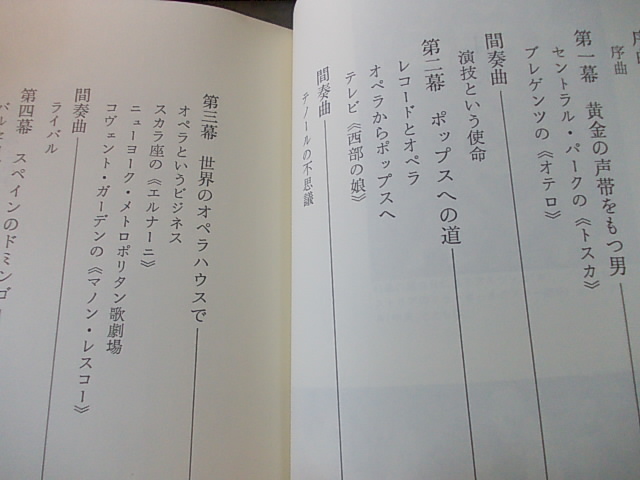 序曲
第一幕 黄金の声帯をもつ男
セントラル・パークの《トスカ》
ブレゲンツの《オテロ》
間奏曲
演技という使命
第二幕 ポップスへの道
レコードとオペラ
オペラからポップスへ
テレビ《西部の娘》
間奏曲
テノールの不思議
第三幕 世界のオペラハウスで
オペラというビジネス
スカラ座の《エルナーニ》
ニューヨーク・メトロポリタン歌劇場
コヴェント・ガーデンの《マノン・レスコー》
間奏曲
ライバル
第四幕 スペインのドミンゴ